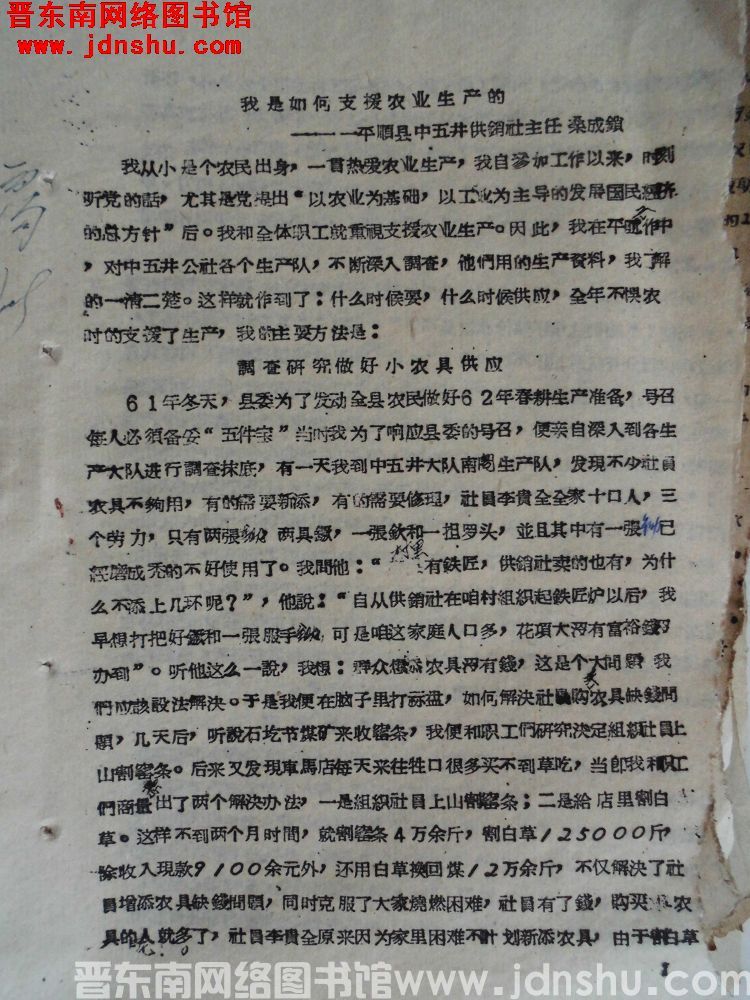 晋东南网络图书馆
www.jdnshu.com
我是如何支援农业生产的
———平顺县中五井供销社主任 桑成鎖
我从小是个农民出身，一貫热爱农业生产，我自参加工作以来，时刻
听党的話，尤其是党提出“以农业为基础，以工业为主导的发展国民經济
的总方针”后。我和全体职工就重視支援农业生产。因此，我在平时工作中
，对中五井公社各个生产队，不断深入調査，他們用的生产資料，我了解
的一清二楚。这样就作到了：什么时候要，什么时候供应，全年不惧农
时的支援了生产，我的主要方法是：
調査研究做好小农具供应
61年冬天，县委为了发动全县农民做好62年春耕生产准备，号召
每人必須备妥“五件宝”当时我为了响应县委的号召，便亲自深入到各生
产大队进行調査抹底，有一天我到中五井大队南阁生产队，发現不少社員
农具不夠用，有的需要新添，有的需要修理，社員李貴全全家十口人，三
个劳力，只有两張 两具鐝，一張鍁和一担罗头，並且其中有一張 已
經磨成禿的不好使用了。我問他：“ 有鉄匠，供銷社卖的也有，为什
么不添上几环呢？”，他說：“自从供銷社在咱村組织起鉄匠炉以后，我
早想打把好鐝和一張服手 可是咱这家庭人口多，花項大沒有富裕錢
办到”。听他这么一說，我想：群众想添农具沒有錢，这是个大問題 我
們应該設法解决。于是我便在脑子里打 盘，如何解决社員购农具缺錢問
題，几天后，听說石圪节煤矿来收窑条，我便和职工們研究决定組织社員上
山割窑条。后来又发現車馬店每天来往牲口很多买不到草吃，当即我和职工
們商量出了两个解决办法，一是組织社員上山割窑条；二是給店里割白
草。这样不到两个月时間，就割窑条4万余斤，割白草125000斤，
除收入現款9100余元外，还用白草換回煤12万余斤，不仅解决了社
員增添农具缺錢問題，同时克服了大家燒燃困难，社員有了錢，购买 农
具的人就多了，社員李貴全原来因为家里困难不計划新添农具，由于割白草
1
晋东南网络图书馆 www.jdnshu.com